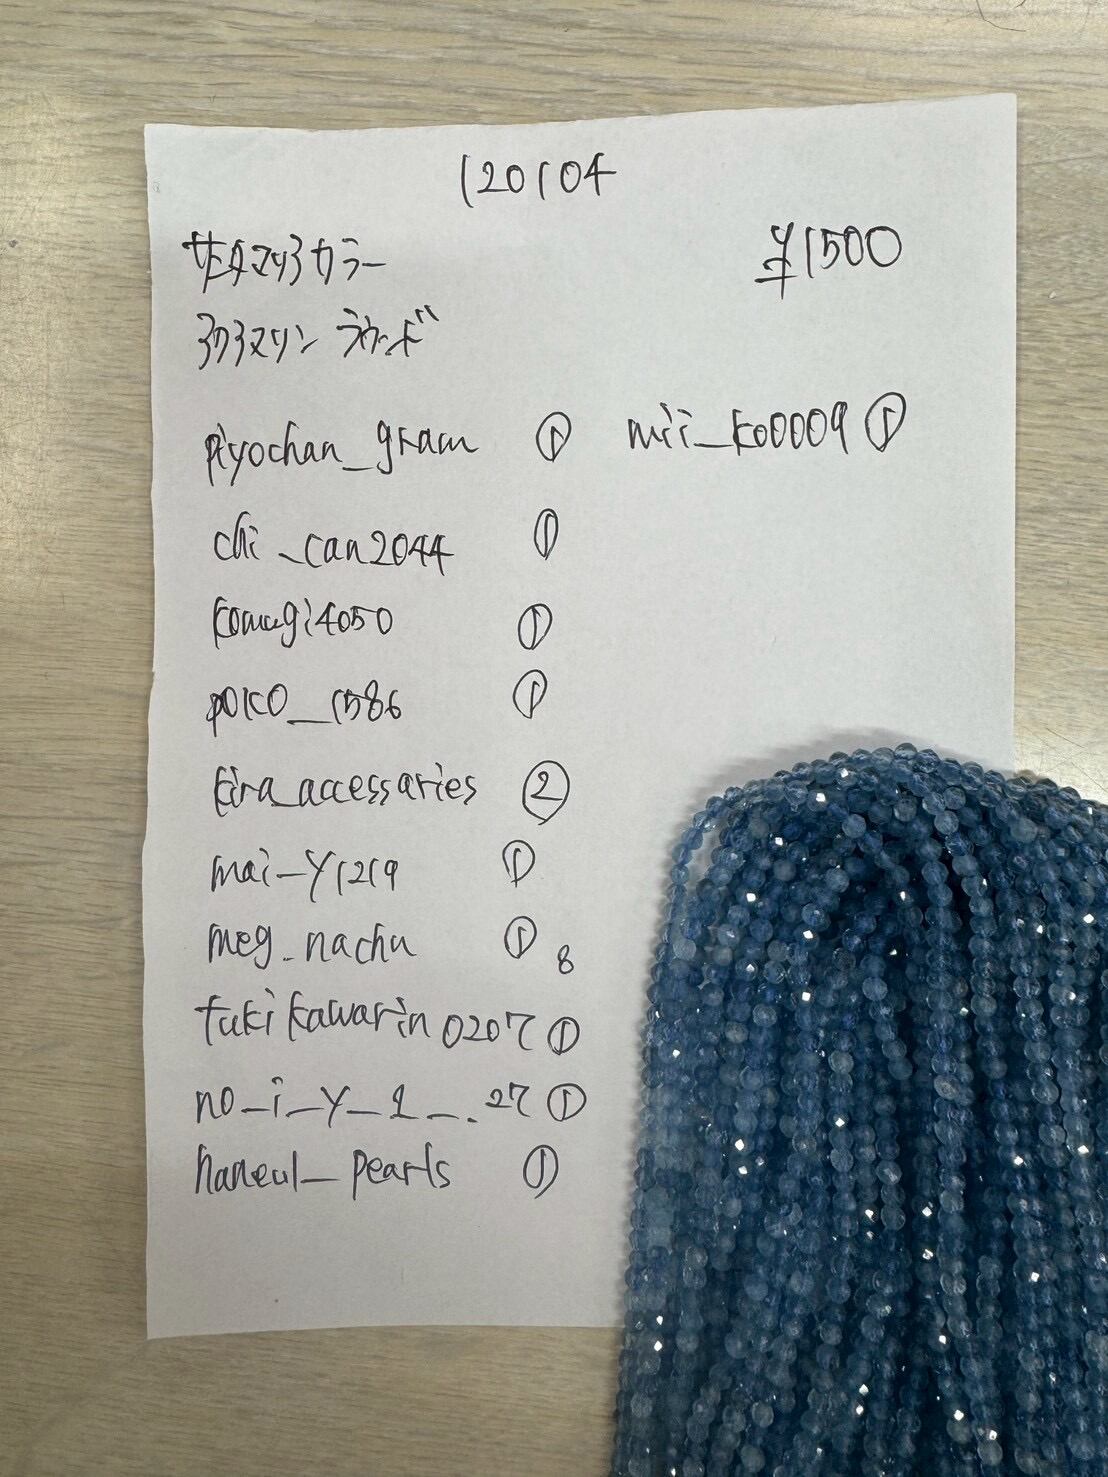 120104
サンタマリアカラー
¥1500
アクアマリン ラウンド
piyochan_gram ①
mii_ko0009 ①
chi_can2044 ①
komugi4050 ①
poko__1586 ①
kira_accessaries ②
mai_y1219 ①
meg_nachu ① 8
tukikawarin0207 ①
no_i_y_1__.27 ①
haneul_pearls ①